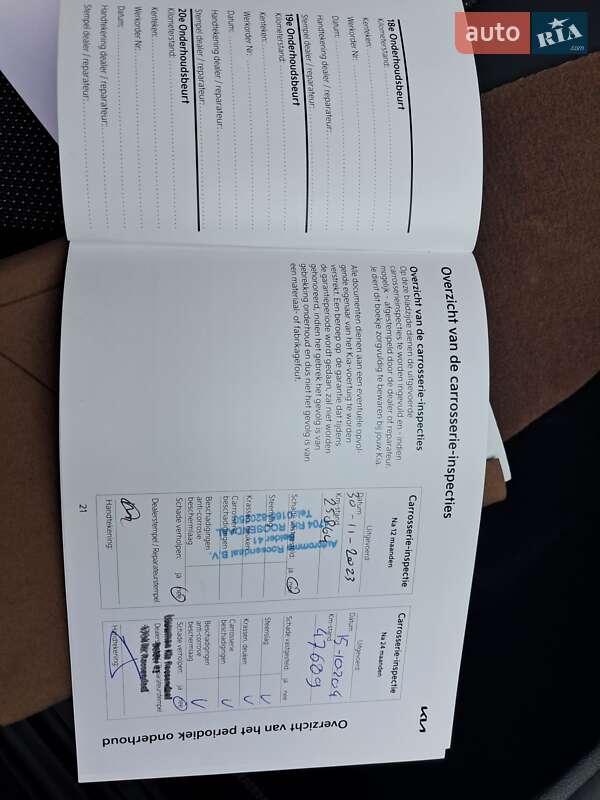 auto RIA.com
18e Onderhoudsbeurt
Kilometerstand:
Kenteken:
Werkorder Nr.:
Datum:
Handtekening dealer / reparateur:
Stempel dealer / reparateur:
19e Onderhoudsbeurt
Kilometerstand:
Kenteken:
Werkorder Nr.:
Datum:
Handtekening dealer / reparateur:
Stempel dealer / reparateur:
20e Onderhoudsbeurt
Kilometerstand:
Kenteken:
Werkorder Nr.:
Datum:
Handtekening dealer / reparateur:
Stempel dealer / reparateur:
Overzicht van de carrosserie-inspecties
Overzicht van de carrosserie-inspecties
Op deze bladzijde dienen de uitgevoerde
carrosserieinspecties te worden ingevuld en - indien
mogelijk - afgestempeld door de dealer of reparateur.
Je dient dit boekje zorgvuldig te bewaren bij jouw Kia.
Alle documenten dienen aan een eventuele opvol-
gende eigenaar van het Kia-voertuig te worden
verstrekt. Een beroep op de garantie dat tijdens
de garantieperiode wordt gedaan, zal niet worden
gehonoreerd, indien het gebrek het gevolg is van
gebrekking onderhoud en dus niet het gevolg is van
een materiaal- of fabrikagefout.
Carrosserie-inspectie
Na 12 maanden
Uitgevoerd
Datum 30-11-2023
Km-stand 25864
Schade vastgesteld ja nee
Steenslag
Krassen, deuken
Carrosserie
beschadigingen
Beschadigingen
anti-corrosie
beschermlaag
Schade verholpen: ja nee
Dealerstempel / Reparateurstempel
Roosendaal B.V.
Handtekening:
Carrosserie-inspectie
Na 24 maanden
Uitgevoerd
Datum 15-10-2024
Km-stand 47609
Schade vastgesteld ja nee
Steenslag
Krassen, deuken
Carrosserie
beschadigingen
Beschadigingen
anti-corrosie
beschermlaag
Schade verholpen: ja nee
Handtekening:
21
KIA
Overzicht van het periodiek onderhoud